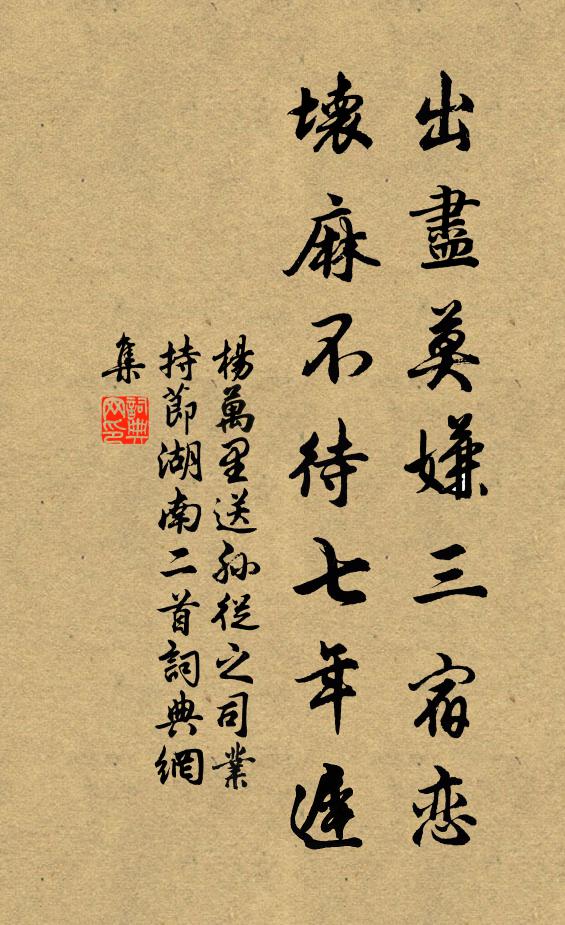 出盡莫嫌三宿恋
壞麻不待七年遲
楊萬里送孫從之司業
持節湖南二首詞典網
集
詞典
网印